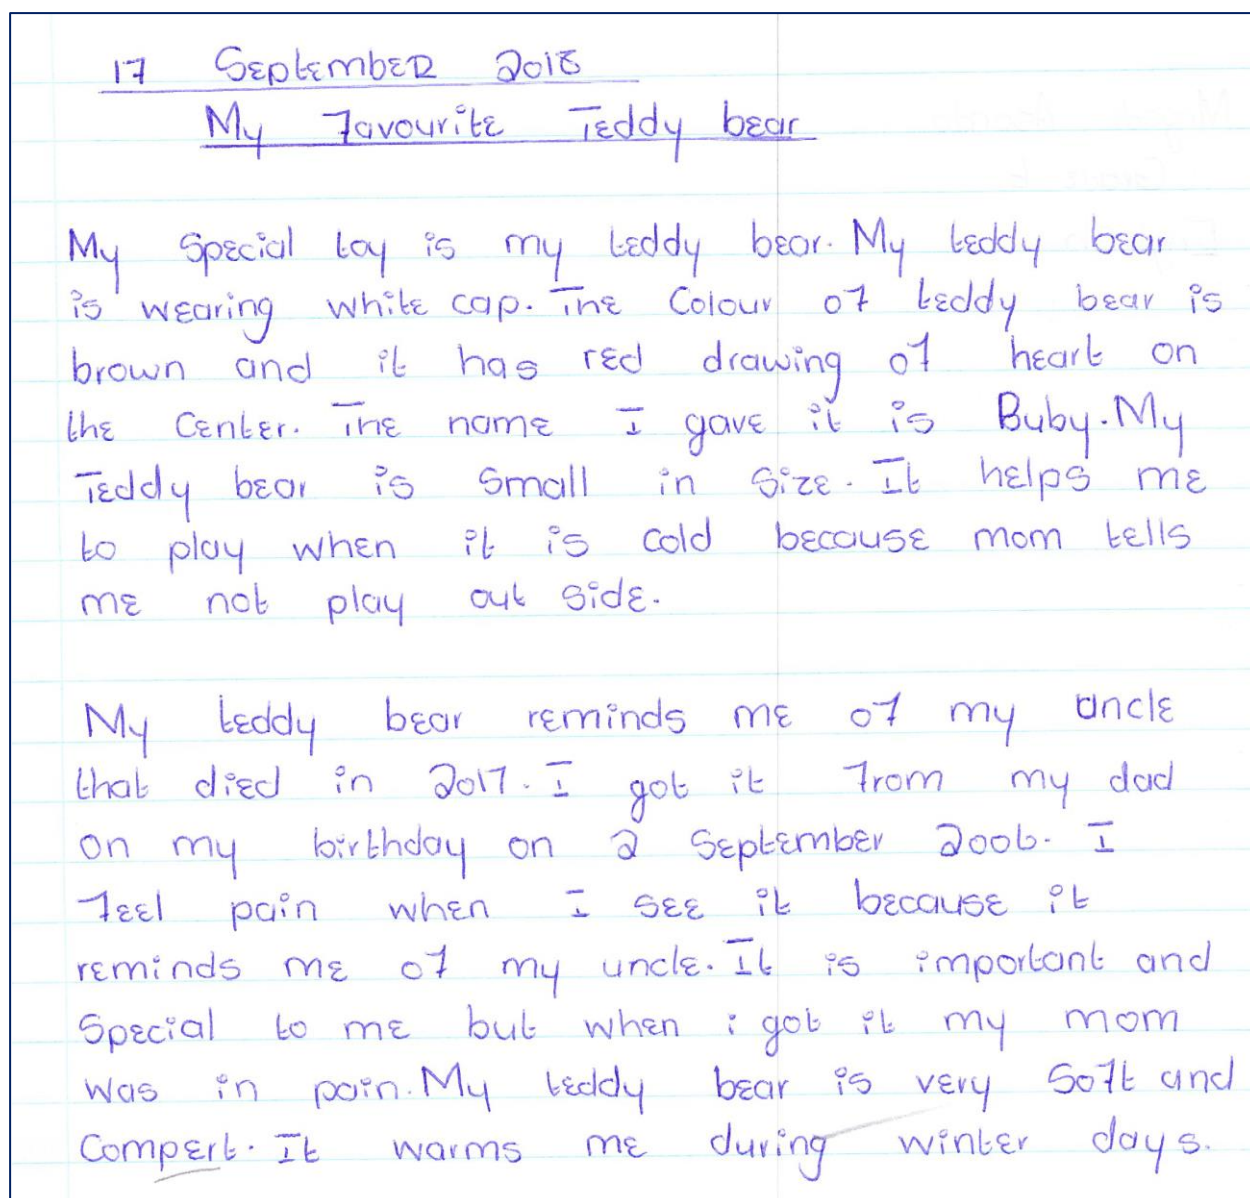 17 September 2018
My Favourite Teddy bear
My special toy is my teddy bear. My teddy bear
is wearing white cap. The Colour of teddy bear is
brown and it has red drawing of heart on
the Center. The name I gave it is Buby. My
Teddy bear is small in size. It helps me
to play when it is cold because mom tells
me not play out side.
My teddy bear reminds me of my uncle
that died in 2017. I got it from my dad
on my birthday on 2 September 2006. I
feel pain when I see it because it
reminds me of my uncle. It is important and
Special to me but when i got it my mom
was in pain. My teddy bear is very soft and
Compert. It warms me during winter days.